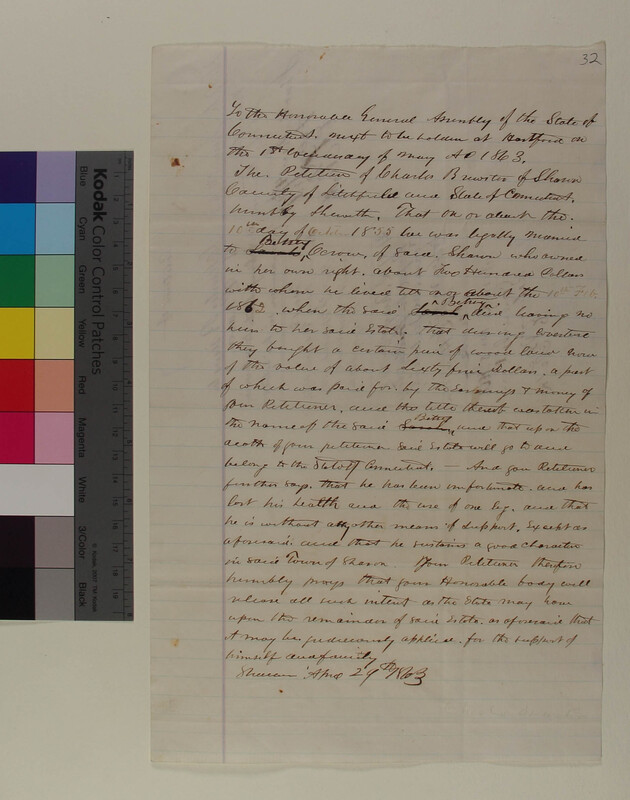 32
To the Honorable General Assembly of the State of
Connecticut, next to be holden at Hartford on
the 1st Wednesday of May AD 1863.
The Petition of Charles Brewster of Sharon
County of Litchfield and State of Connecticut,
humbly sheweth, That on or about the
10th day of 1835 he was legally married
to Sarah Betsey of said Sharon who owned
in her own right, about Two Hundred Dollars
with whom he lived till on or about the 10th Feb
1862, when the said Sarah Betsey died having no
heir to her said Estate, that during Coverture
they bought a certain piece of wood land now
of the value of about Sixty five Dollars, a part
of which was paid for by the Earnings & money of
your Petitioner, and the title thereof was taken in
the name of the said Sarah Betsey and that upon the
death of your petitioner said Estate will go to and
belong to the State of Connecticut. — And your Petitioner
further says, that he has been unfortunate and has
lost his health and the use of one leg, and that
he is without any other means of support, Except as
aforesaid, and that he sustains a good character
in said Town of Sharon. Your Petitioner therefore
humbly prays that your Honorable body will
release all such interest as the State may have
upon the remainder of said Estate, as aforesaid that
it may be judiciously applied, for the support of
himself and family
Sharon 29th 1863
Kodak Color Control Patches
Blue
Cyan
Green
Yellow
Red
Magenta
White
3/Color
Black